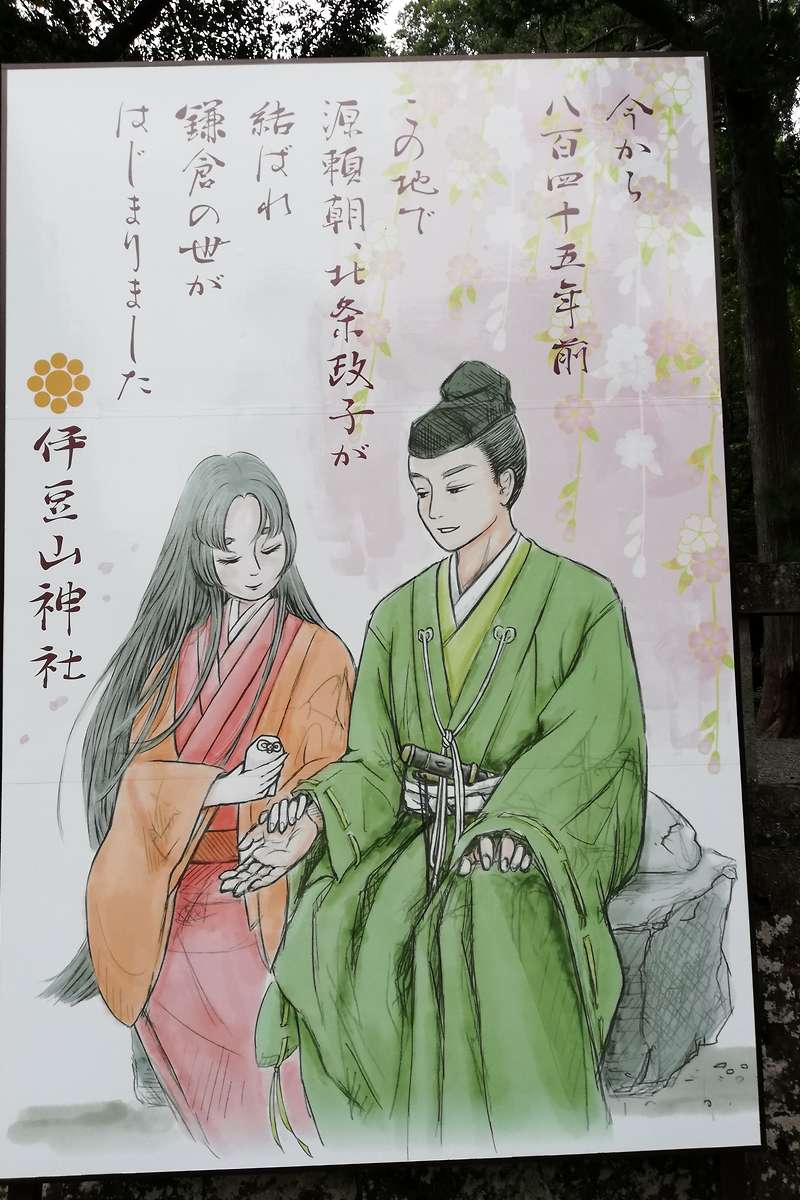 今から
八百四十五年前
この地で
源頼朝、北条政子が
結ばれ
鎌倉の世が
はじまりました
伊豆山神社